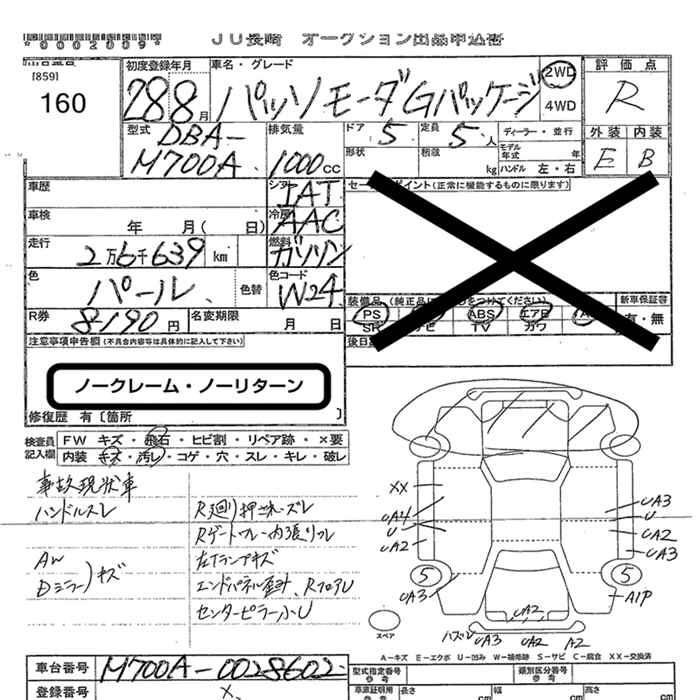 *0002009*
JU長崎 オークション出品申込書
[859]
160
初度登録年月
28 8月
車名・グレード
パッソ モーダ Gパッケージ
2WD
4WD
評価点
R
外装 内装
E B
型式
DBA-
M700A
排気量
1000cc
ドア 5
定員 5人
形状
積載 kg
ディーラー・並行
モデル年式 年
ハンドル 左・右
車歴
シフト
IAT
車検 年 月( 日)
冷房
AAC
走行
2万6千639 km
燃料
ガソリン
色
パール
色替
色コード
W24
R券
8190円
名変期限 月 日
セールスポイント(正常に機能するものに限ります)
装備品(純正品に○をつけてください)
新車保証書
PS ABS エアB
SR ナビ TV カワ
有・無
注意事項申告欄(不具合内容等は具体的に記入して下さい)
ノークレーム・ノーリターン
修復歴 有〔箇所 〕
検査員記入欄
FW キズ・飛石・ヒビ割・リペア跡・×要
内装 キズ・汚レ・コゲ・穴・スレ・キレ・破レ
事故現状車
ハンドルスレ
AW
Dミラー)キズ
R廻り押されズレ
Rゲートフレー内張りフレ
左Tランプキズ
エンドパネル歪計、RフロアU
センターピラー小U
XX
UA4
U
UA2
UA3
U
UA2
UA3
5
5
UA3
A1P
UA2
ハズレ
UA3
UA2
A2
スペア
A-キズ E-エクボ U-凹み W-補修跡 S-サビ C-腐食 XX-交換済
車台番号
M700A-0028602
登録番号
型式指定番号
参考
類別区分番号
参考
車庫証明用
参考
長さ cm
幅 cm
高さ cm